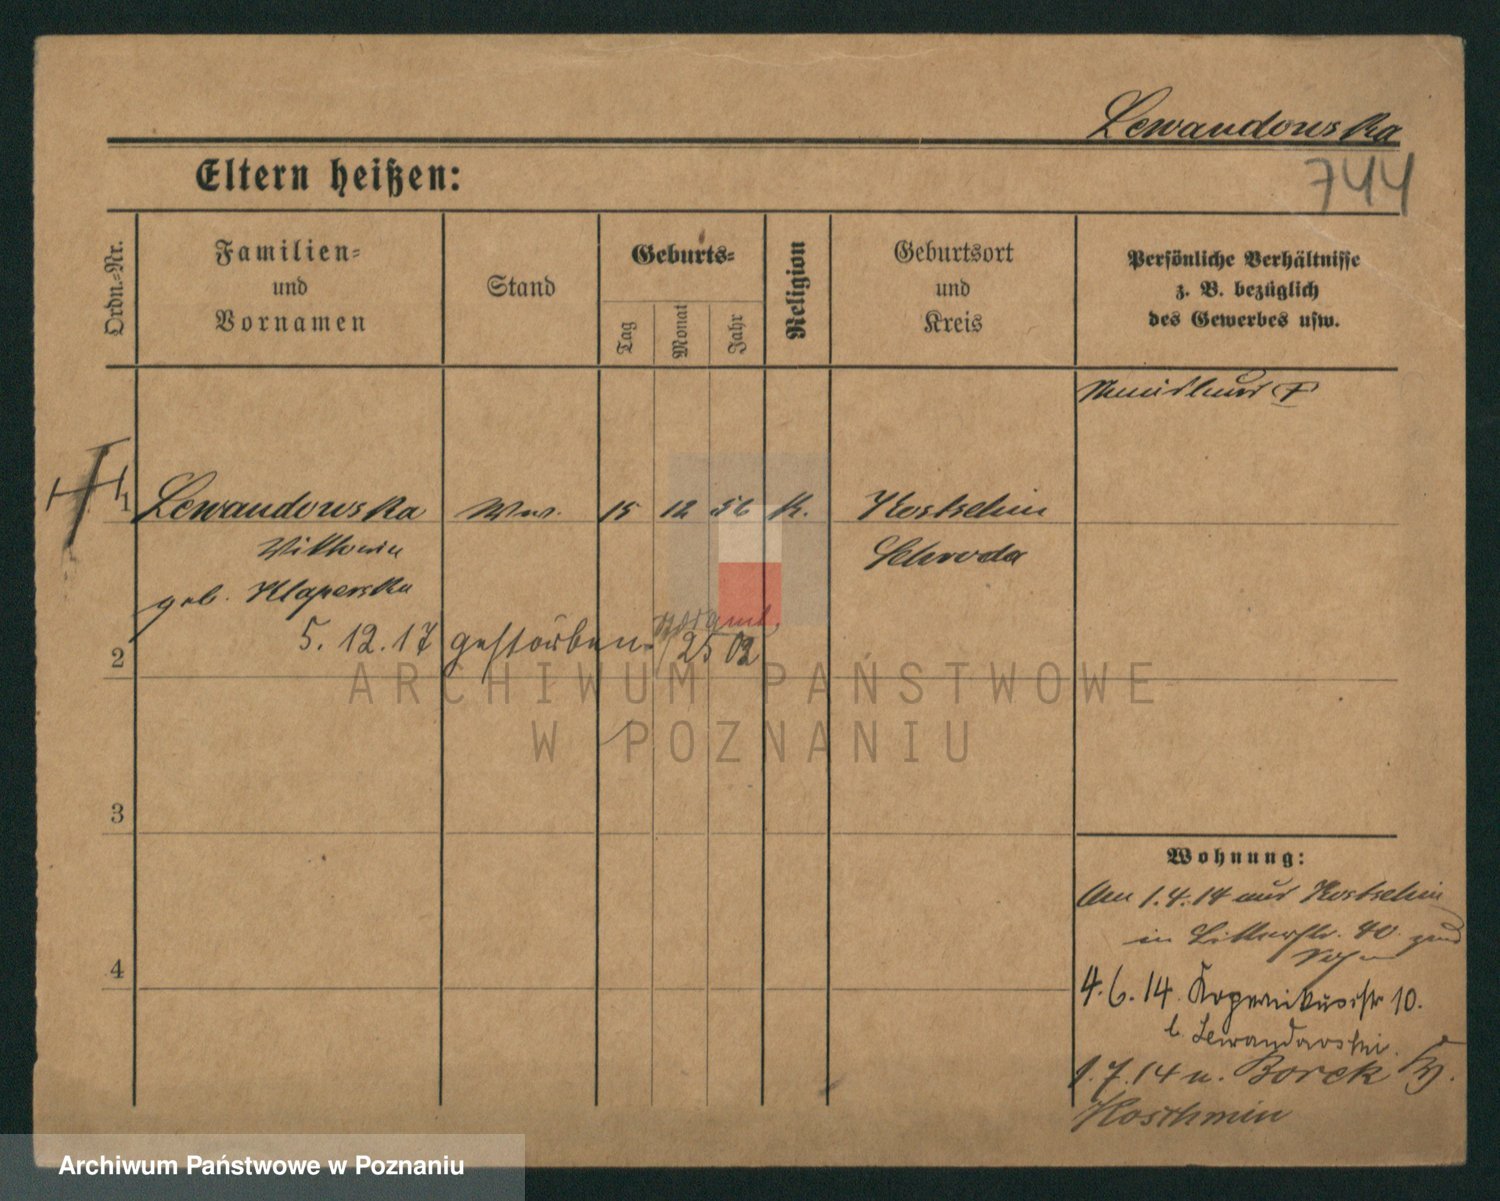 Lewandowska
744
Eltern heißen:
Ordn.-Nr.
Familien-
und
Vornamen
Stand
Geburts-
Tag
Monat
Jahr
Religion
Geburtsort
und
Kreis
Persönliche Verhältnisse
z. B. bezüglich
des Gewerbes usw.
1
Lewandowska Ww. 15 12 56 K. Kostschin
Viktoria
Schroda
geb. Klaperska
5. 12. 17 gestorben.
25 02
2
3
4
Wohnung:
Am 1.4.14 aus Kostschin
in 40
4.6.14. Kopernikusstr 10.
b. Lewandowski.
1.7.14 n. Borek
Koschmin
ARCHIWUM PAŃSTWOWE
W POZNANIU
Archiwum Państwowe w Poznaniu